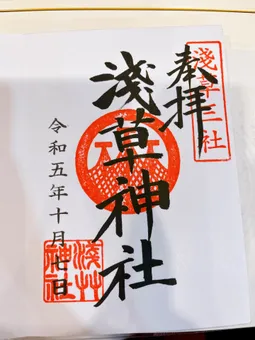 淺草三社
奉拝
淺草神社
令和五年十月七日
淺艸
神社